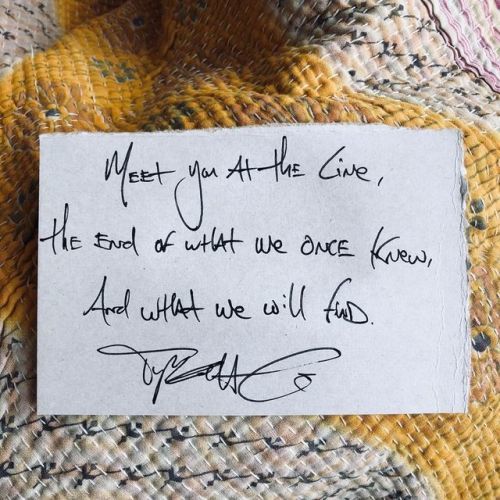 Meet you At the Line,
the End of what we once Knew,
And what we will find.